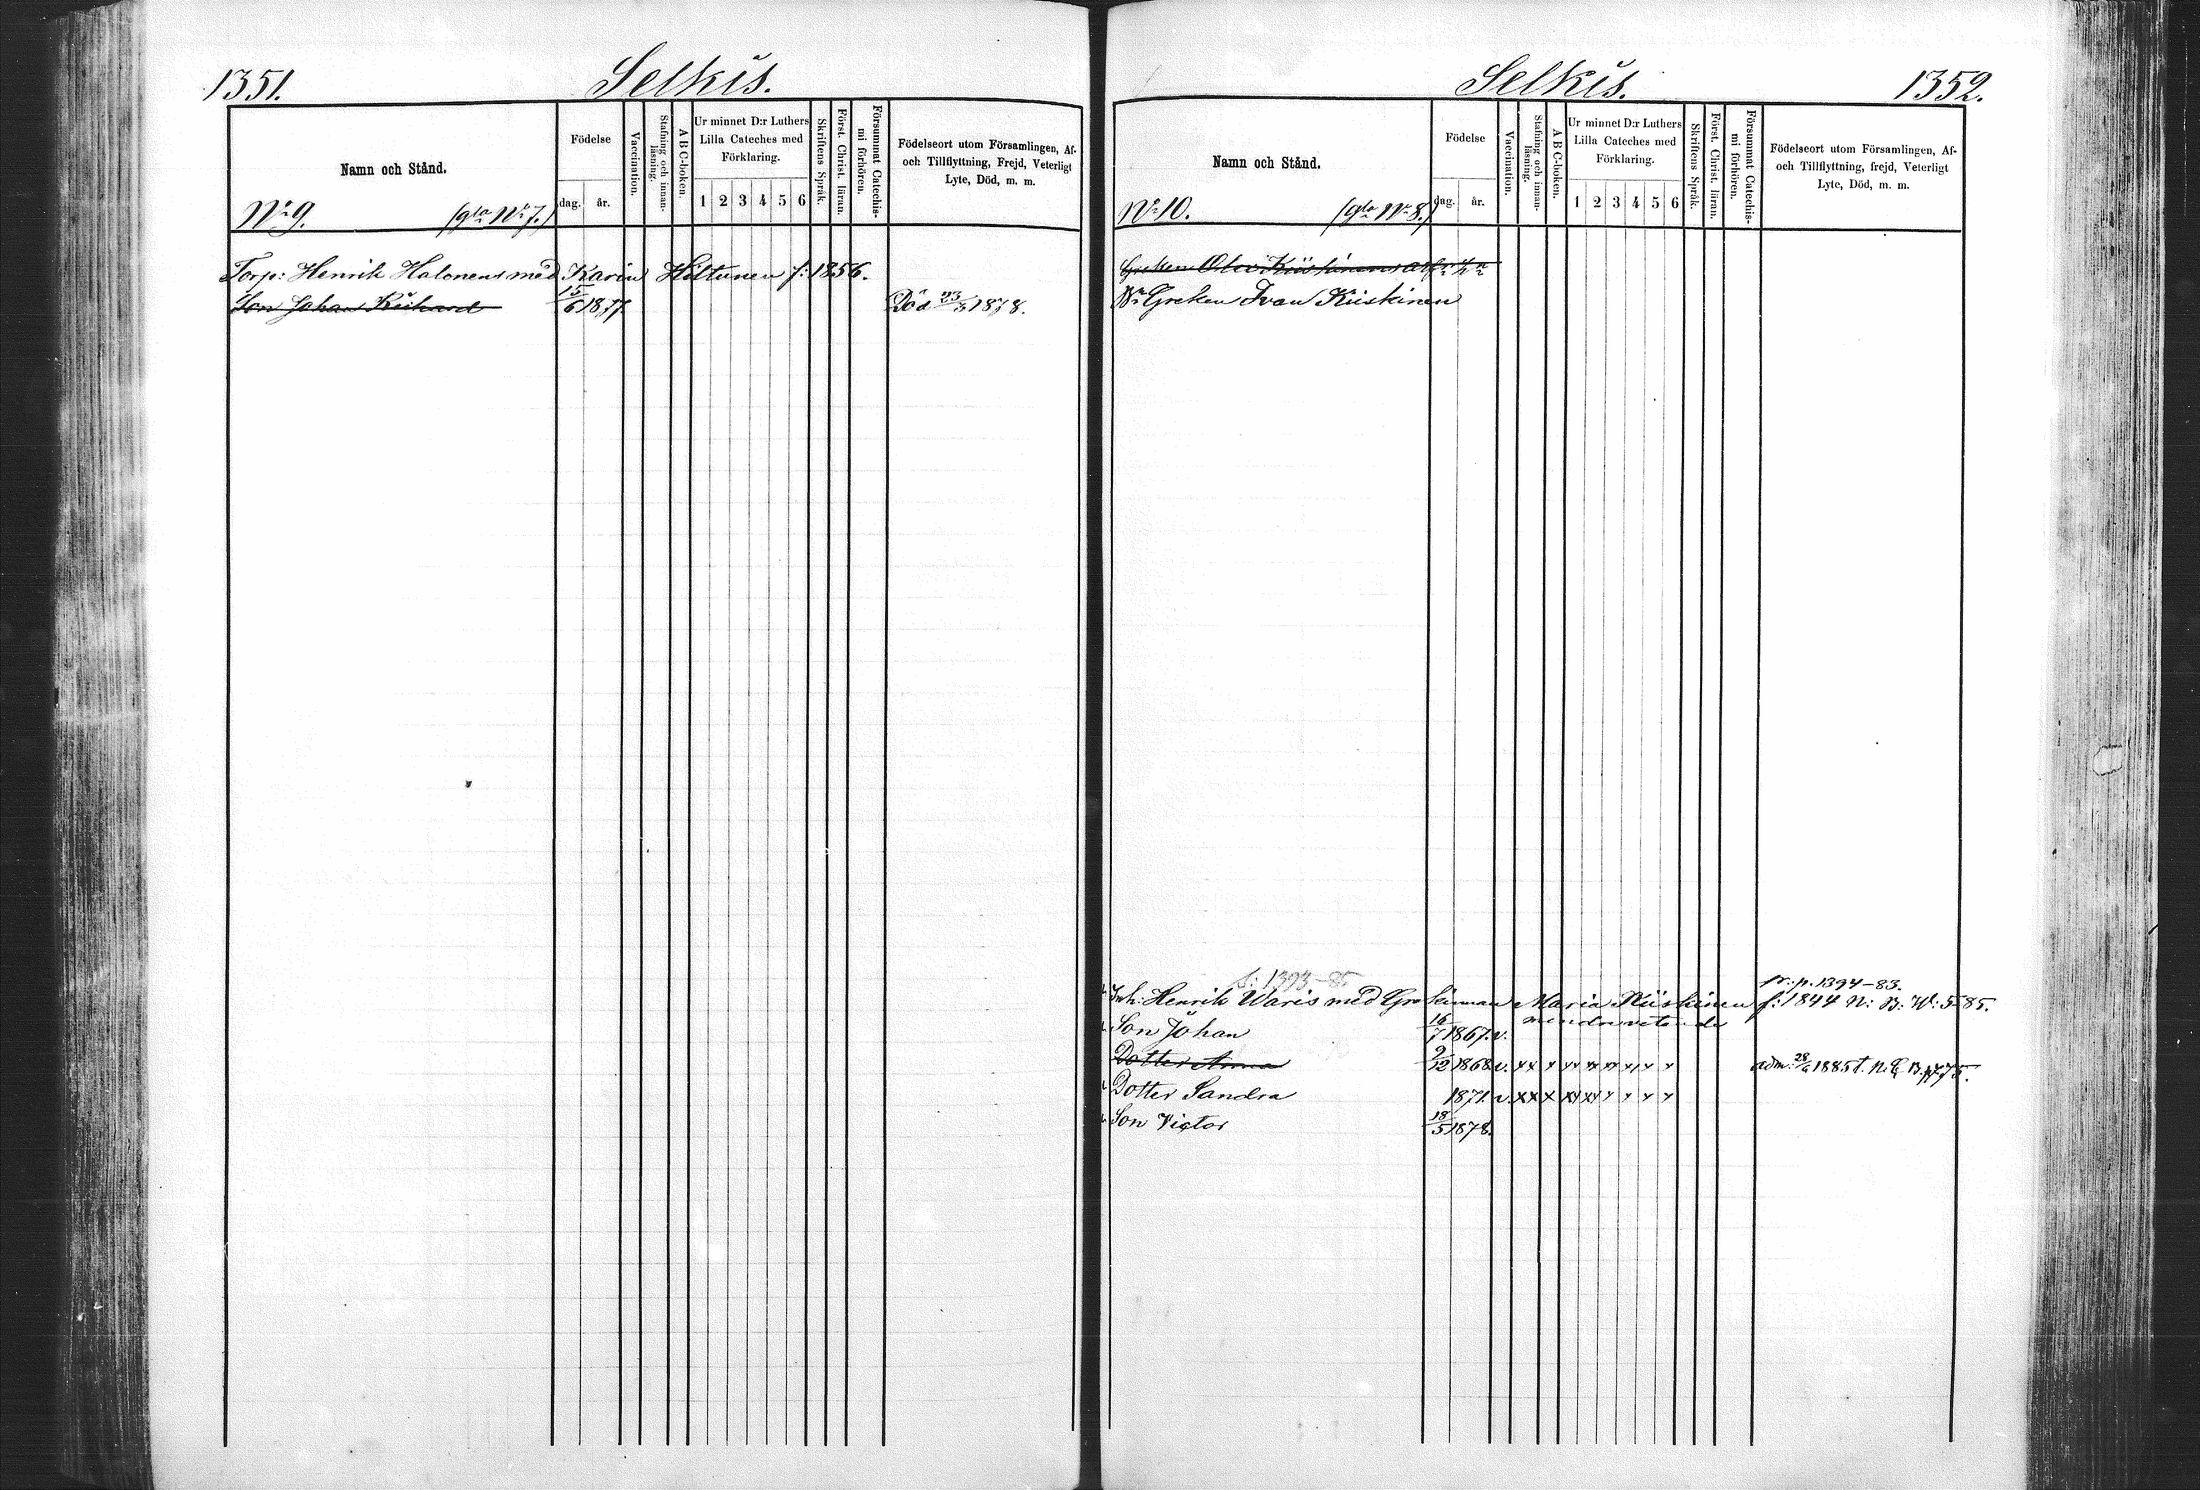 1351.
Selkis.
Namn och Stånd.
Födelse
dag. år.
Vaccination.
Stafning och innan-läsning.
A B C-boken.
Ur minnet D:r Luthers
Lilla Cateches med
Förklaring.
1 2 3 4 5 6
Skriftens Språk.
Först. Christ. läran.
Försummat Catechis-
mi förhören.
Födelseort utom Församlingen, Af-
och Tillflyttning, Frejd, Veterligt
Lyte, Död, m. m.
No 9. (gla No 7.)
Torp: Henrik Halonens med Karin Hiltunen f: 1856.
Son Johan Richard 15/6 1877. Död 23/5 1878.
Selkis.
1352.
Namn och Stånd.
Födelse
dag. år.
Vaccination.
Stafning och innan-läsning.
A B C-boken.
Ur minnet D:r Luthers
Lilla Cateches med
Förklaring.
1 2 3 4 5 6
Skriftens Språk.
Först. Christ. läran.
Försummat Catechis-
mi förhören.
Födelseort utom Församlingen, Af-
och Tillflyttning, frejd, Veterligt
Lyte, Död, m. m.
No 10. (gla No 8.)
Greken Kiiskinens
Greken Ivan Kiiskinen
1393-85
p. 1394-83.
Inh: Henrik Waris med Grekinnan Maria Kiiskinen f: 1844 N: B: W: 5-85.
Son Johan 16/7 1867. v.
Dotter Anna 9/12 1868 v. xx x xx xx xx x x x adm. 28/6 1885
Dotter Sandra 1871. v. xx x xx xx x x x x
Son Victor 18/5 1878.